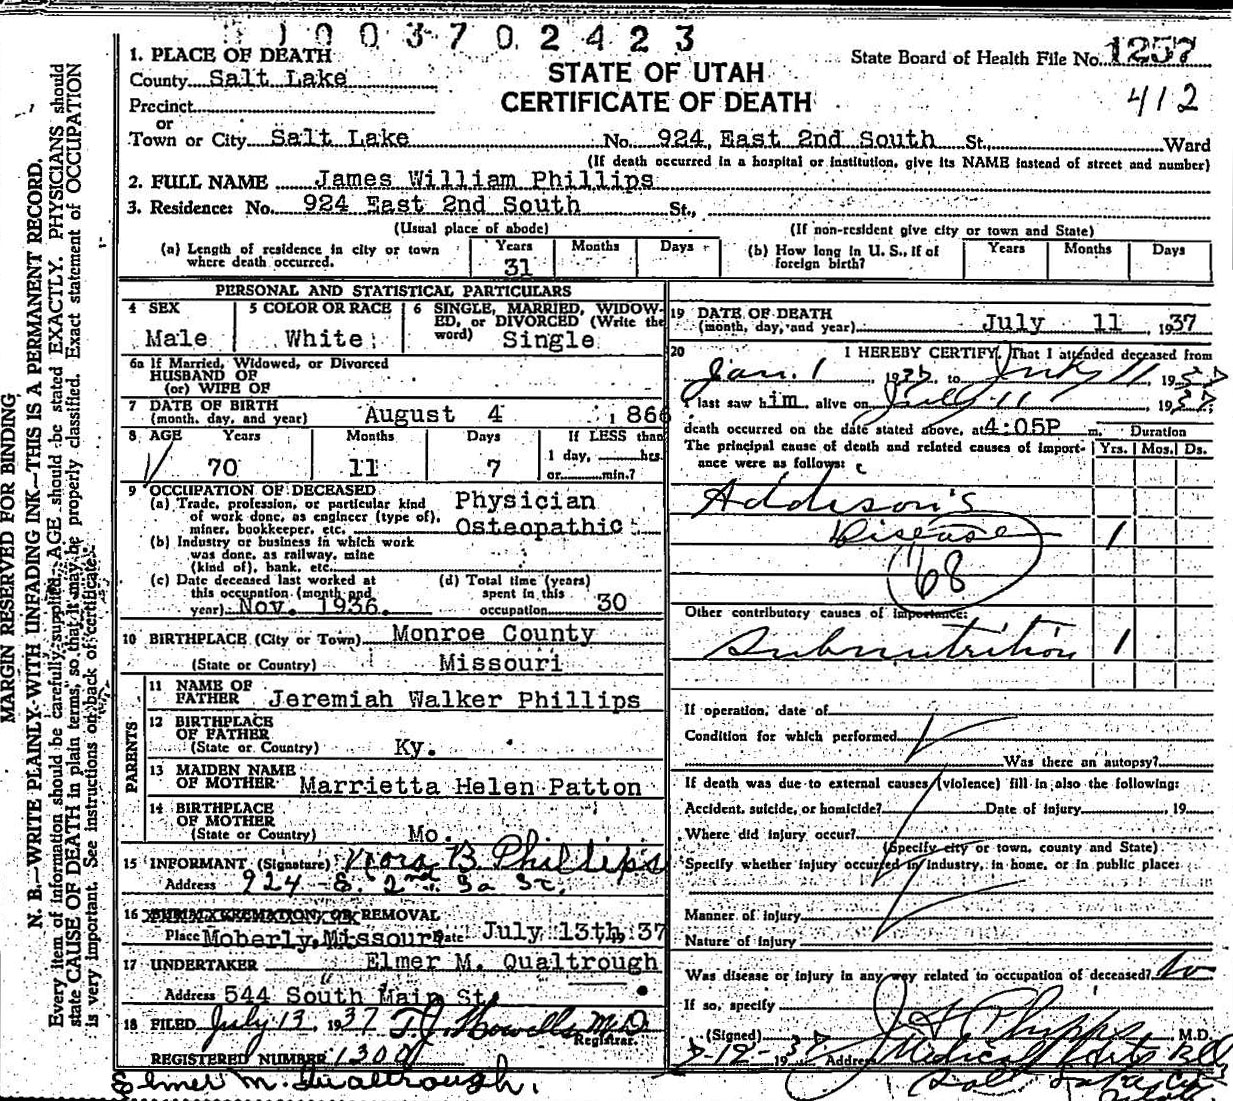 1003702423
1. PLACE OF DEATH
State Board of Health File No. 1257
County Salt Lake
STATE OF UTAH
412
Precinct
CERTIFICATE OF DEATH
or
Town or City Salt Lake No. 924 East 2nd South St., Ward
(If death occurred in a hospital or institution, give its NAME instead of street and number)
2. FULL NAME James William Phillips
3. Residence: No. 924 East 2nd South St.,
(Usual place of abode) (If non-resident give city or town and State)
(a) Length of residence in city or town where death occurred. Years 31 Months Days
(b) How long in U. S., if of foreign birth? Years Months Days
PERSONAL AND STATISTICAL PARTICULARS
4 SEX Male
5 COLOR OR RACE White
6 SINGLE, MARRIED, WIDOW-
ED, or DIVORCED (Write the
word) Single
6a If Married, Widowed, or Divorced
HUSBAND OF
(or) WIFE OF
7 DATE OF BIRTH
(month, day, and year) August 4 1866
8 AGE Years Months Days If LESS than
70 11 7 1 day, hrs.
or min.?
9 OCCUPATION OF DECEASED
(a) Trade, profession, or particular kind Physician
of work done, as engineer (type of),
miner, bookkeeper, etc. Osteopathic
(b) Industry or business in which work
was done, as railway, mine
(kind of), bank, etc.
(c) Date deceased last worked at
this occupation (month and
year) Nov. 1936.
(d) Total time (years)
spent in this
occupation 30
10 BIRTHPLACE (City or Town) Monroe County
(State or Country) Missouri
PARENTS
11 NAME OF
FATHER Jeremiah Walker Phillips
12 BIRTHPLACE
OF FATHER
(State or Country) Ky.
13 MAIDEN NAME
OF MOTHER Marrietta Helen Patton
14 BIRTHPLACE
OF MOTHER
(State or Country) Mo.
15 INFORMANT (Signature) B. Phillips
Address 924 - E. 2nd So St.
16 BURIAL, CREMATION, OR REMOVAL
Place Moberly, Missouri Date July 13th, 37
17 UNDERTAKER Elmer M. Qualtrough
Address 544 South Main St.
18 FILED July 13, 1937 T. J. Howells M.D.
Registrar.
REGISTERED NUMBER 1300
Elmer M. Qualtrough.
19 DATE OF DEATH
(month, day, and year) July 11, 1937
20 I HEREBY CERTIFY, That I attended deceased from
Jan. 1, 1937 to July 11, 1937
I last saw him alive on July 11 1937
death occurred on the date stated above, at 4:05P m. Duration
The principal cause of death and related causes of import-
ance were as follows: Yrs. Mos. Ds.
Addison's
Disease 1
68
Other contributory causes of importance:
Subnutrition 1
If operation, date of
Condition for which performed
Was there an autopsy?
If death was due to external causes (violence) fill in also the following:
Accident, suicide, or homicide? Date of injury , 19
Where did injury occur?
(Specify city or town, county and State)
Specify whether injury occurred in industry, in home, or in public place:
Manner of injury
Nature of injury
Was disease or injury in any way related to occupation of deceased? No
If so, specify
(Signed) Phipps, M.D.
7-12-1937 Address Medical Arts Bld
Salt Lake City
Utah.
MARGIN RESERVED FOR BINDING
N. B.—WRITE PLAINLY WITH UNFADING INK—THIS IS A PERMANENT RECORD.
Every item of information should be carefully supplied, AGE should be stated EXACTLY. PHYSICIANS should
state CAUSE OF DEATH in plain terms, so that it may be properly classified. Exact statement of OCCUPATION
is very important. See instructions on back of certificate.